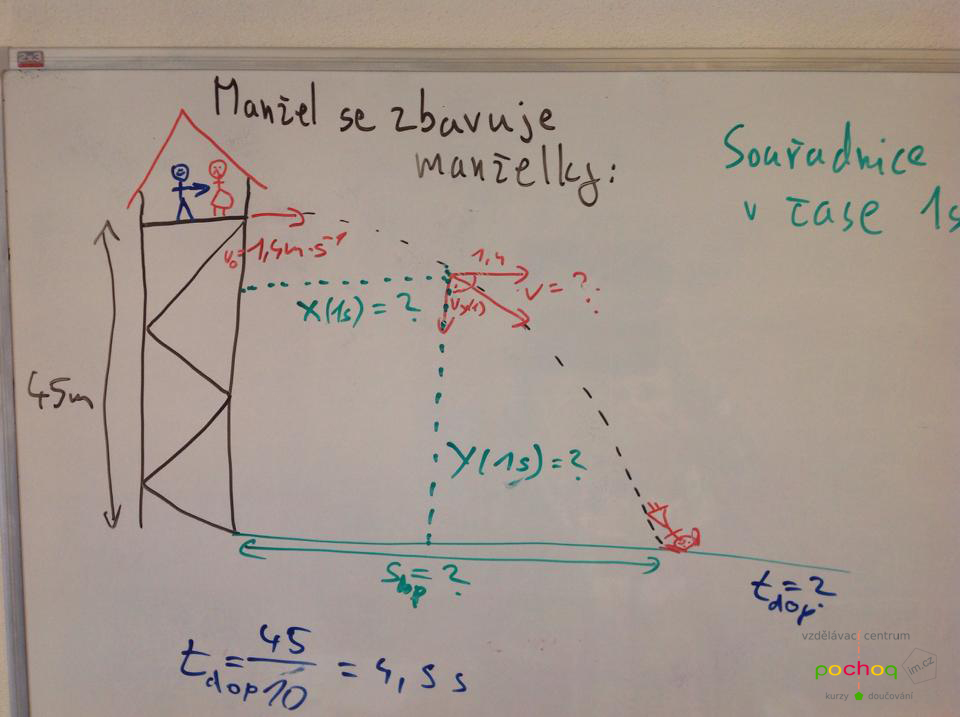 2x3
Manžel se zbavuje
manželky:
Souřadnice
v čase 1s
v₀=1,4m·s⁻¹
1,4
v = ?
Vy(1)
X(1s) = ?
45m
Y(1s) = ?
Sdop = ?
tdop = ?
tdop = 45/10 = 4,5 s
vzdělávací centrum
pochoq
im.cz
kurzy doučování